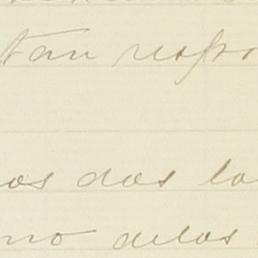 tan respo
os dos la
no delos